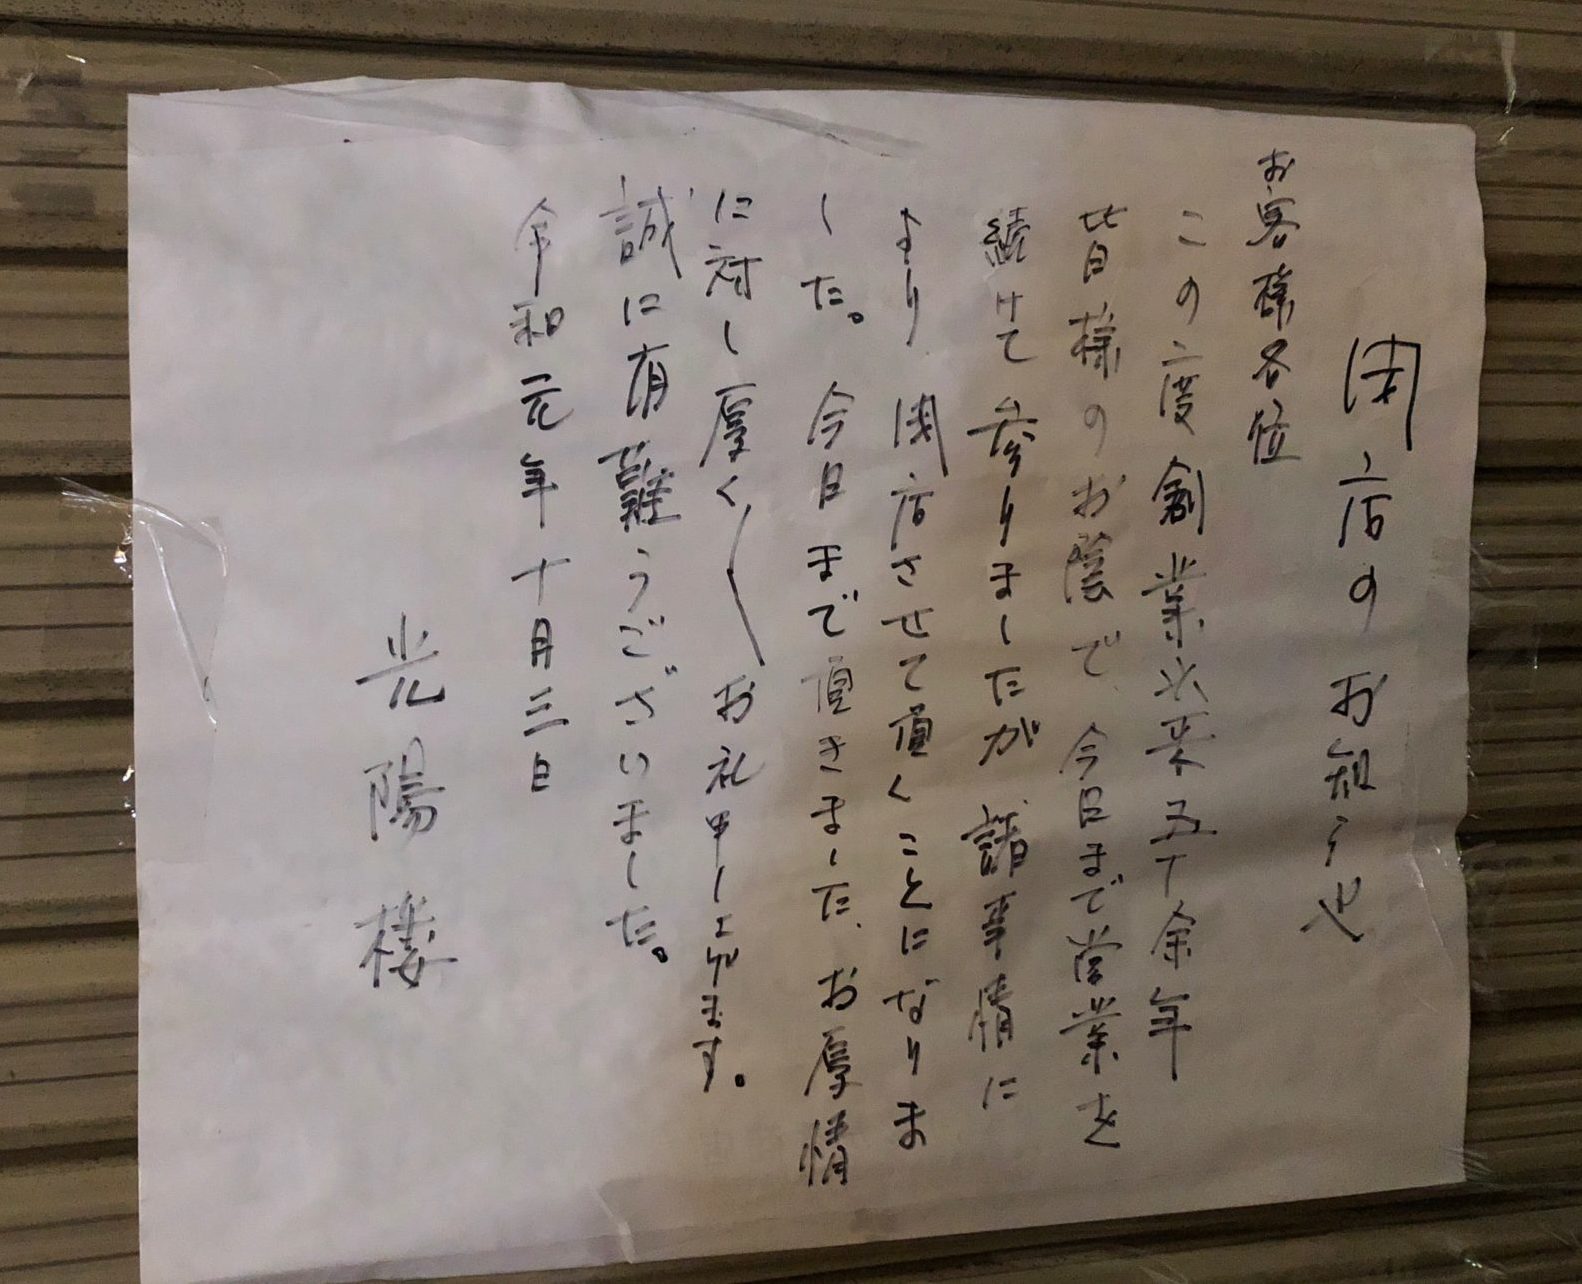 閉店のお知らせ
お客様各位
この度創業以来五十余年
皆様のお蔭で、今日まで営業を
続けて参りましたが諸事情に
より閉店させて頂くことになりま
した。今日まで頂きました、お厚情
に対し厚く〱お礼申し上げます。
誠に有難うございました。
令和元年十月三日
光陽楼